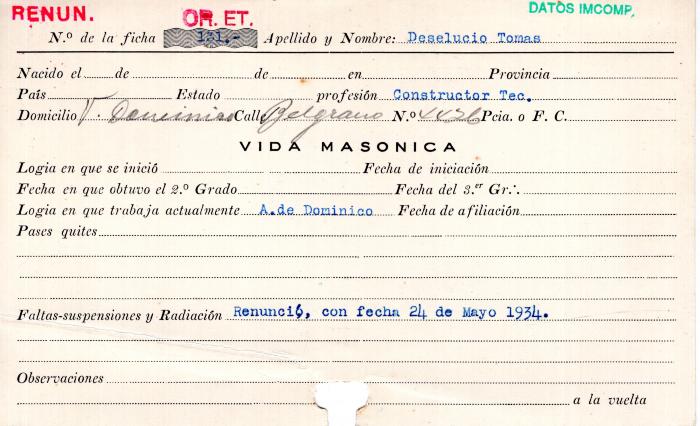 RENUN. OR. ET. DATOS IMCOMP.
N.º de la ficha 131.- Apellido y Nombre: Deselucio Tomas
Nacido el de de en Provincia
País Estado profesión Constructor Tec.
Domicilio V. Dominico Calle Belgrano N.º 4426 Pcia. o F. C.
VIDA MASONICA
Logia en que se inició Fecha de iniciación
Fecha en que obtuvo el 2.º Grado Fecha del 3.er Gr∴
Logia en que trabaja actualmente A.de Dominico Fecha de afiliación
Pases quites
Faltas-suspensiones y Radiación Renunció, con fecha 24 de Mayo 1934.
Observaciones
a la vuelta